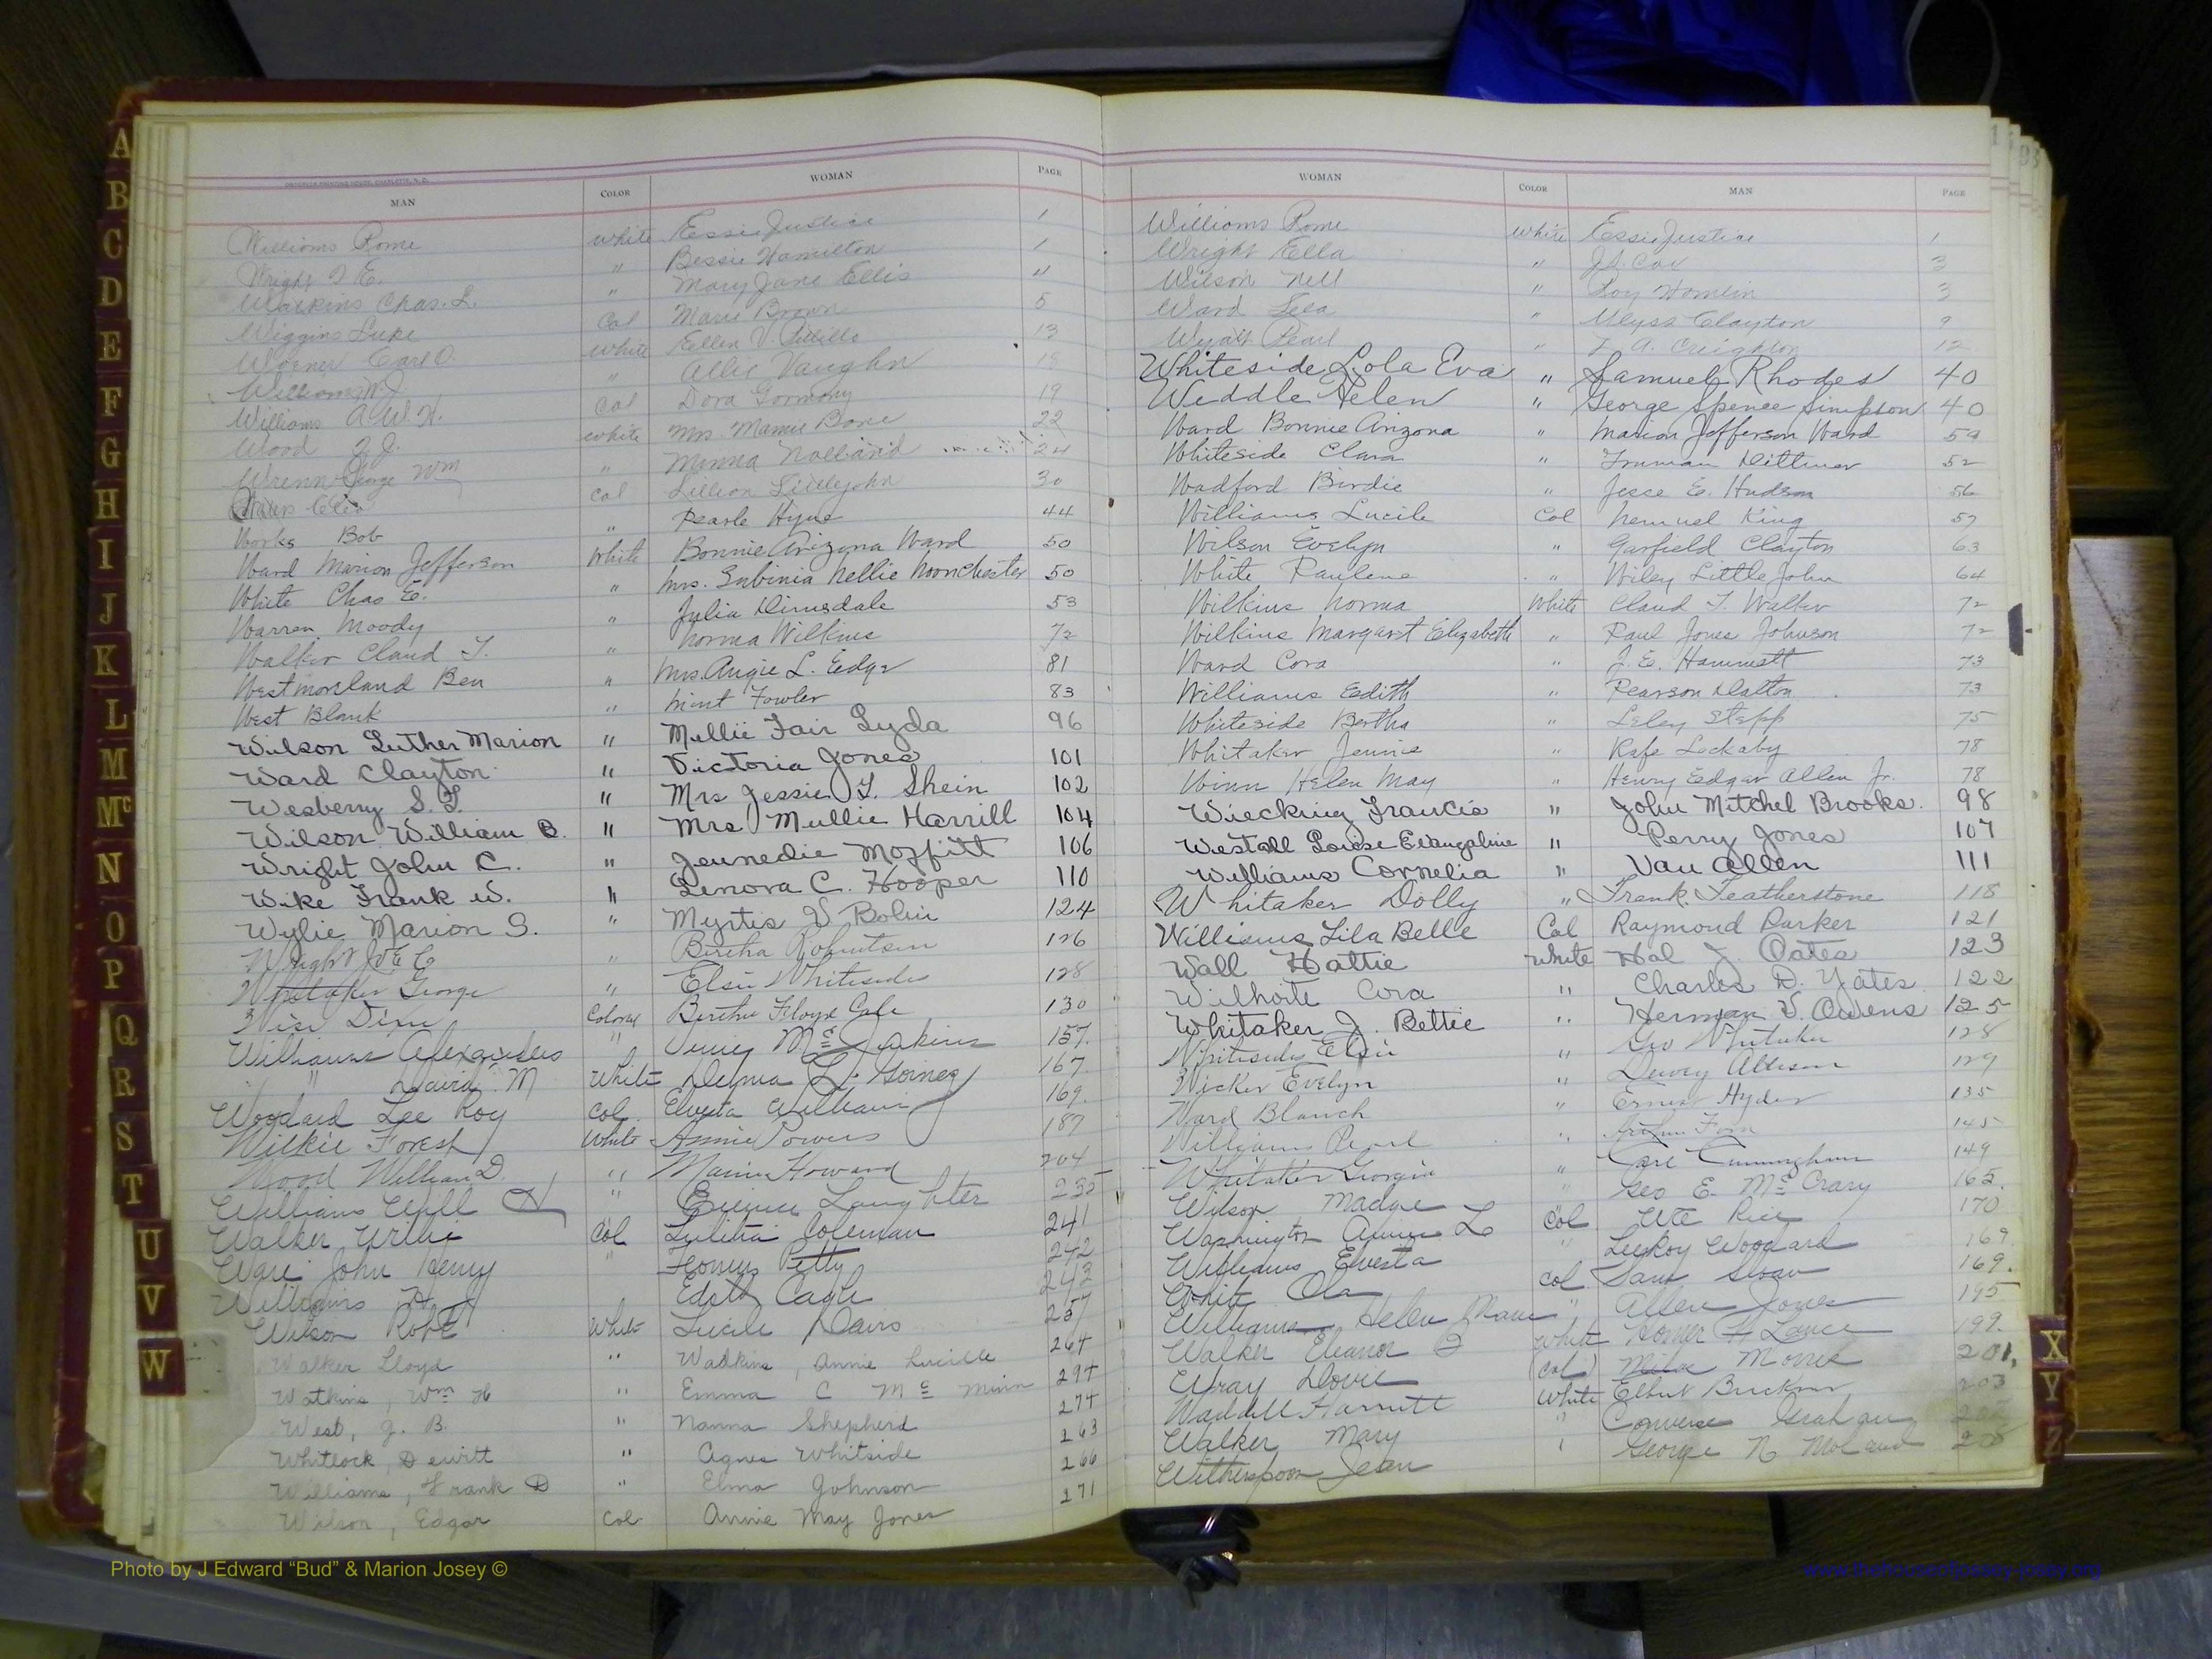 MAN COLOR WOMAN PAGE
Williams Rome White Essie Justice 1
Wright F. E. " Bessie Hamilton 1
Watkins Chas. L. " Mary Jane Ellis 4
Wiggins Luke Col Marie Brown 5
Carl O. White Ellen V. 13
Williams W. J. " Allie Vaughn 18
Williams A. W. H. Col Dora 19
Wood J. J. White Mrs. Mamie 22
Wrenn George Wm " Minna 24
Col Lillian Littlejohn 30
Works Bob " Pearle Hyne 44
Ward Marion Jefferson White Bonnie Arizona Ward 50
White Chas E. " Mrs. Subinia Nellie Noonchester 50
Warren Moody " Julia Dimsdale 53
Walker Claud T. " Norma Wilkins 72
Westmoreland Ben " Mrs. Angie L. Edge 81
West Blank " Mint Fowler 83
Wilson Luther Marion " Mellie Fair Lyda 96
Ward Clayton " Victoria Jones 101
Wesberry S. T. " Mrs Jessie T. Shein 102
Wilson William B. " Mrs Mullie Harrill 104
Wright John C. " Jeunedie Moffitt 106
Wike Frank W. " Lenora C. Hooper 110
Wylie Marion S. " Myrtis V. Bolin 124
Wright Joe C " Bertha Robertson 126
Whitaker George " Elsie Whiteside 128
Wise Dixie Colored Bertha Floyd 130
Williams " Mc 157.
" David M White L. 167
Woodard Lee Roy Col. Elvesta Williams 169.
Wilkie Forest White Annie Powers 187
Wood William D. " Mamie Howard 204
Williams Will " Eunice Laughter 235
Walker Willie Col Lulitia Coleman 241
Ware John Henry " Petty 242
Williams Edith Cagle 243
Wilson Robt White Lucile Davis 257
Walker Lloyd " Wadkins, Annie Lucille 264
Watkins, Wm H " Emma C Mc Minn 294
West, J. B. " Nanna Shepherd 274
Whitlock, Dewitt " Agnes Whitside 263
Williams, Frank D " Elma Johnson 266
Wilson, Edgar Col Annie May Jones 271
WOMAN COLOR MAN PAGE
Williams Rome White Essie Justice 1
Wright Ella " J. S. Cox 3
Wilson Nell " Roy Hamlin 3
Ward Lela " Ulyss Clayton 9
Wyatt Pearl " A. Creighton 12
Whiteside Lola Eva " Samuel Rhodes 40
Weddle Helen " George Spence Simpson 40
Ward Bonnie Arizona " Marion Jefferson Ward 50
Whiteside Clara " Truman Dittmer 52
Wadford Birdie " Jesse E. Hudson 56
Williams Lucile Col Lemuel King 57
Wilson Evelyn " Garfield Clayton 63
White Paulene " Wiley Little John 64
Wilkins Norma White Claud T. Walker 72
Wilkins Margaret Elizabeth " Paul Jones Johnson 72
Ward Cora " J. E. Hammett 73
Williams Edith " Pearson Dalton 73
Whiteside Bertha " Leley Stepp 75
Whitaker Jennie " Rafe Lockaby 78
Winn Helen May " Henry Edgar Allen Jr. 78
Wiecking Francis " John Mitchel Brooks. 98
Westall Louise Evangaline " Perry Jones 107
Williams Cornelia " Van Allen 111
Whitaker Dolly " Frank Featherstone 118
Williams Lila Belle Col Raymond Parker 121
Wall Hattie White Hal J. Oates 123
Wilhoite Cora " Charles D. Yates 122
Whitaker J. Bettie " Herman V. Owens 125
Whiteside Elsie " Geo Whitaker 128
Wicker Evelyn " Dewey Allison 129
Ward Blanch " Ernest Hyder 135
Williams Pearl " 145
Whitaker Georgia " Carl Cunningham 149
Wilson Madge " Geo E. Mc Crary 162.
Washington Annie L Col Ute Rice 170
Williams Elvesta " Leekoy Woodard 169
White Ola Col Sam 169.
Williams Helen " Allen Jones 195
Walker Eleanor White Homer Lance 199.
Wray Dovie (Col) Morris 201,
Waddell Harriett White Elbert 203
Walker Mary " Converse Graham
Witherspoon Jean " George N
A
B
C
D
E
F
G
H
I
J
K
L
M
Mc
N
O
P
Q
R
S
T
U
V
W
X
Y
Z
Photo by J Edward “Bud” & Marion Josey ©
www.thehouseofjosey-josey.org